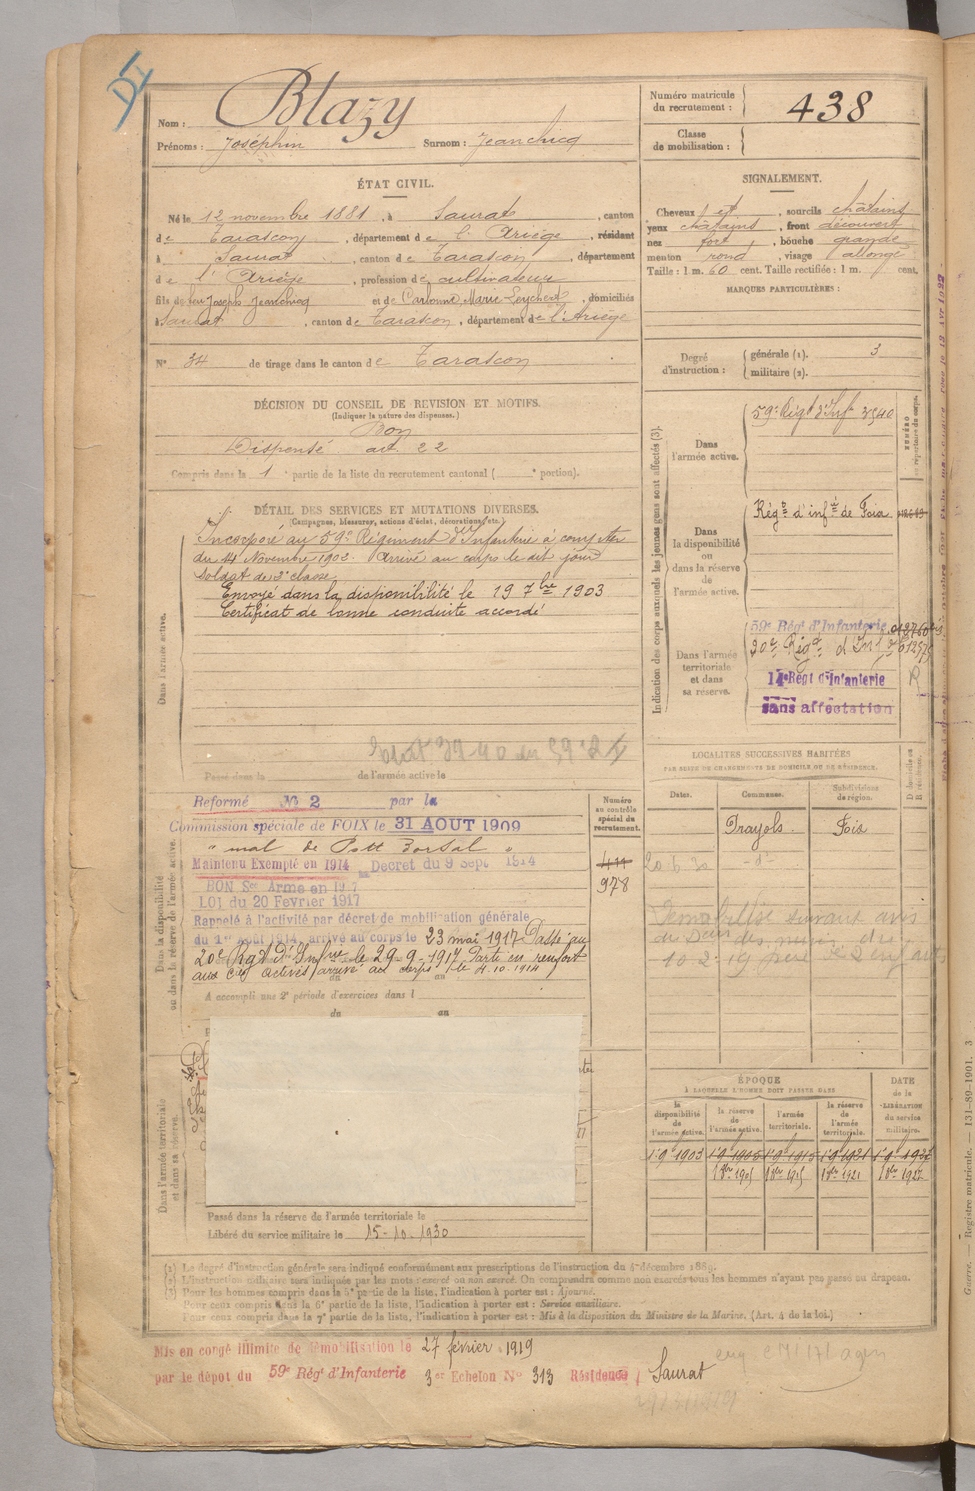 DI
Nom : Blazy
Prénoms : Joséphin Surnom : Jeanchicq
Numéro matricule
du recrutement : 438
Classe
de mobilisation :
ÉTAT CIVIL.
Né le 12 novembre 1881, à Saurat, canton
de Tarascon, département de l'Ariège, résidant
à Saurat, canton de Tarascon, département
de l'Ariège, profession de cultivateur
fils de feu Joseph Jeanchicq et de Carbonne Marie, domiciliés
à Saurat, canton de Tarascon, département de l'Ariège
N° 34 de tirage dans le canton de Tarascon
SIGNALEMENT.
Cheveux et, sourcils châtains
yeux châtains, front découvert
nez fort, bouche grande
menton rond, visage allongé
Taille : 1 m. 60 cent. Taille rectifiée : 1 m. cent.
MARQUES PARTICULIÈRES :
Degré
d'instruction :
générale (1). 3
militaire (2).
DÉCISION DU CONSEIL DE REVISION ET MOTIFS.
(Indiquer la nature des dispenses.)
Bon
Dispensé art. 22
Compris dans la 1e partie de la liste du recrutement cantonal ( e portion).
DÉTAIL DES SERVICES ET MUTATIONS DIVERSES.
(Campagnes, blessures, actions d'éclat, décorations, etc.)
Dans l'armée active.
Incorporé au 59e Régiment d'Infanterie à compter
du 14 Novembre 1902. Arrivé au corps le dit jour
Soldat de 2e classe
Envoyé dans la disponibilité le 19 7bre 1903
Certificat de bonne conduite accordé
Passé dans la de l'armée active le
Indication des corps auxquels les jeunes gens sont affectés (3).
NUMÉRO
au répertoire du corps.
Dans
l'armée active.
59e Régt d'Inf 3940
Dans
la disponibilité
ou
dans la réserve
de
l'armée active.
Régt d'infie de Foix
Dans l'armée
territoriale
et dans
sa réserve.
59e Régt d'Infanterie
20e Régt d'Infie
14e Régt d'Infanterie
sans affectation
R
Dans la disponibilité
ou dans la réserve de l'armée active.
Réformé N° 2 par la
Commission spéciale de FOIX le 31 AOUT 1909
" mal de Pott dorsal "
Maintenu Exempté en 1914 Decret du 9 Sept 1914
BON Sce Armé en 1917
LOI du 20 Fevrier 1917
Rappelé à l'activité par décret de mobilisation générale
du 1er Août 1914, arrivé au corps le 23 mai 1917. Passé au
20e Rgt d'Infrie le 29-9-1917. Parti en renfort
aux
A accompli une 2e période d'exercices dans l
du au
Numéro
au contrôle
spécial du
recrutement.
978
LOCALITÉS SUCCESSIVES HABITÉES
PAR SUITE DE CHANGEMENTS DE DOMICILE OU DE RÉSIDENCE.
Dates.
Communes.
Subdivisions
de région.
D domicile ou
R résidence.
Prayols. Foix
20.6.30 - d° -
Démobilisé suivant avis
10.2.19 père de 2 enfants
Dans l'armée territoriale
et dans sa réserve.
Passé dans la réserve de l'armée territoriale le
Libéré du service militaire le 15-10-1930
ÉPOQUE
À LAQUELLE L'HOMME DOIT PASSER DANS
la
disponibilité
de
l'armée active.
la réserve
de
l'armée active.
l'armée
territoriale.
la réserve
de
l'armée
territoriale.
DATE
de la
LIBÉRATION
du service
militaire.
1 9e 1903 1 9e 1905 1 9e 1915 1 9e 1921 1 9e 1927
1 8bre 1905 1 8bre 1915 1 8bre 1921 1 8bre 1927
(1) Le degré d'instruction générale sera indiqué conformément aux prescriptions de l'instruction du 4 décembre 1889.
(2) L'instruction militaire sera indiquée par les mots exercé ou non exercé. On comprendra comme non exercés tous les hommes n'ayant pas passé au drapeau.
(3) Pour les hommes compris dans la 5e partie de la liste, l'indication à porter est : Ajourné.
Pour ceux compris dans la 6e partie de la liste, l'indication à porter est : Service auxiliaire.
Pour ceux compris dans la 7e partie de la liste, l'indication à porter est : Mis à la disposition du Ministre de la Marine. (Art. 4 de la loi.)
Mis en congé illimité de démobilisation le 27 février 1919
par le dépot du 59e Régt d'Infanterie 3er Echelon N° 313 Résidence Saurat
Guerre. — Registre matricule. — 131-89-1901. 3